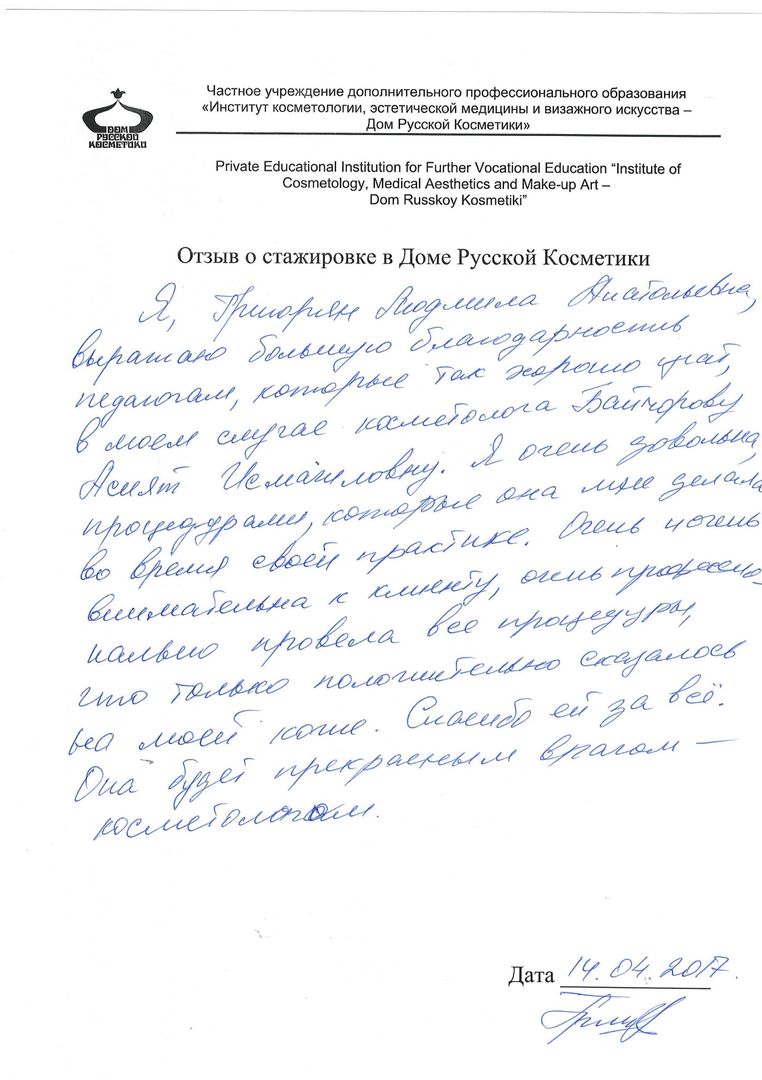 ДОМ
РУССКОЙ
КОСМЕТИКИ
Частное учреждение дополнительного профессионального образования
«Институт косметологии, эстетической медицины и визажного искусства –
Дом Русской Косметики»
Private Educational Institution for Further Vocational Education “Institute of
Cosmetology, Medical Aesthetics and Make-up Art –
Dom Russkoy Kosmetiki”
Отзыв о стажировке в Доме Русской Косметики
Я, Григорян Людмила Анатольевна,
выражаю большую благодарность
педагогам, которые так хорошо учат,
в моем случае косметолога Байчорову
Асият Исмаиловну. Я очень довольна
процедурами, которые она мне делала
во время своей практики. Очень и очень
внимательна к клиенту, очень профессио-
нально провела все процедуры,
что только положительно сказалось
на моей коже. Спасибо ей за всё.
Она будет прекрасным врачом –
косметологом.
Дата 14.04.2017.